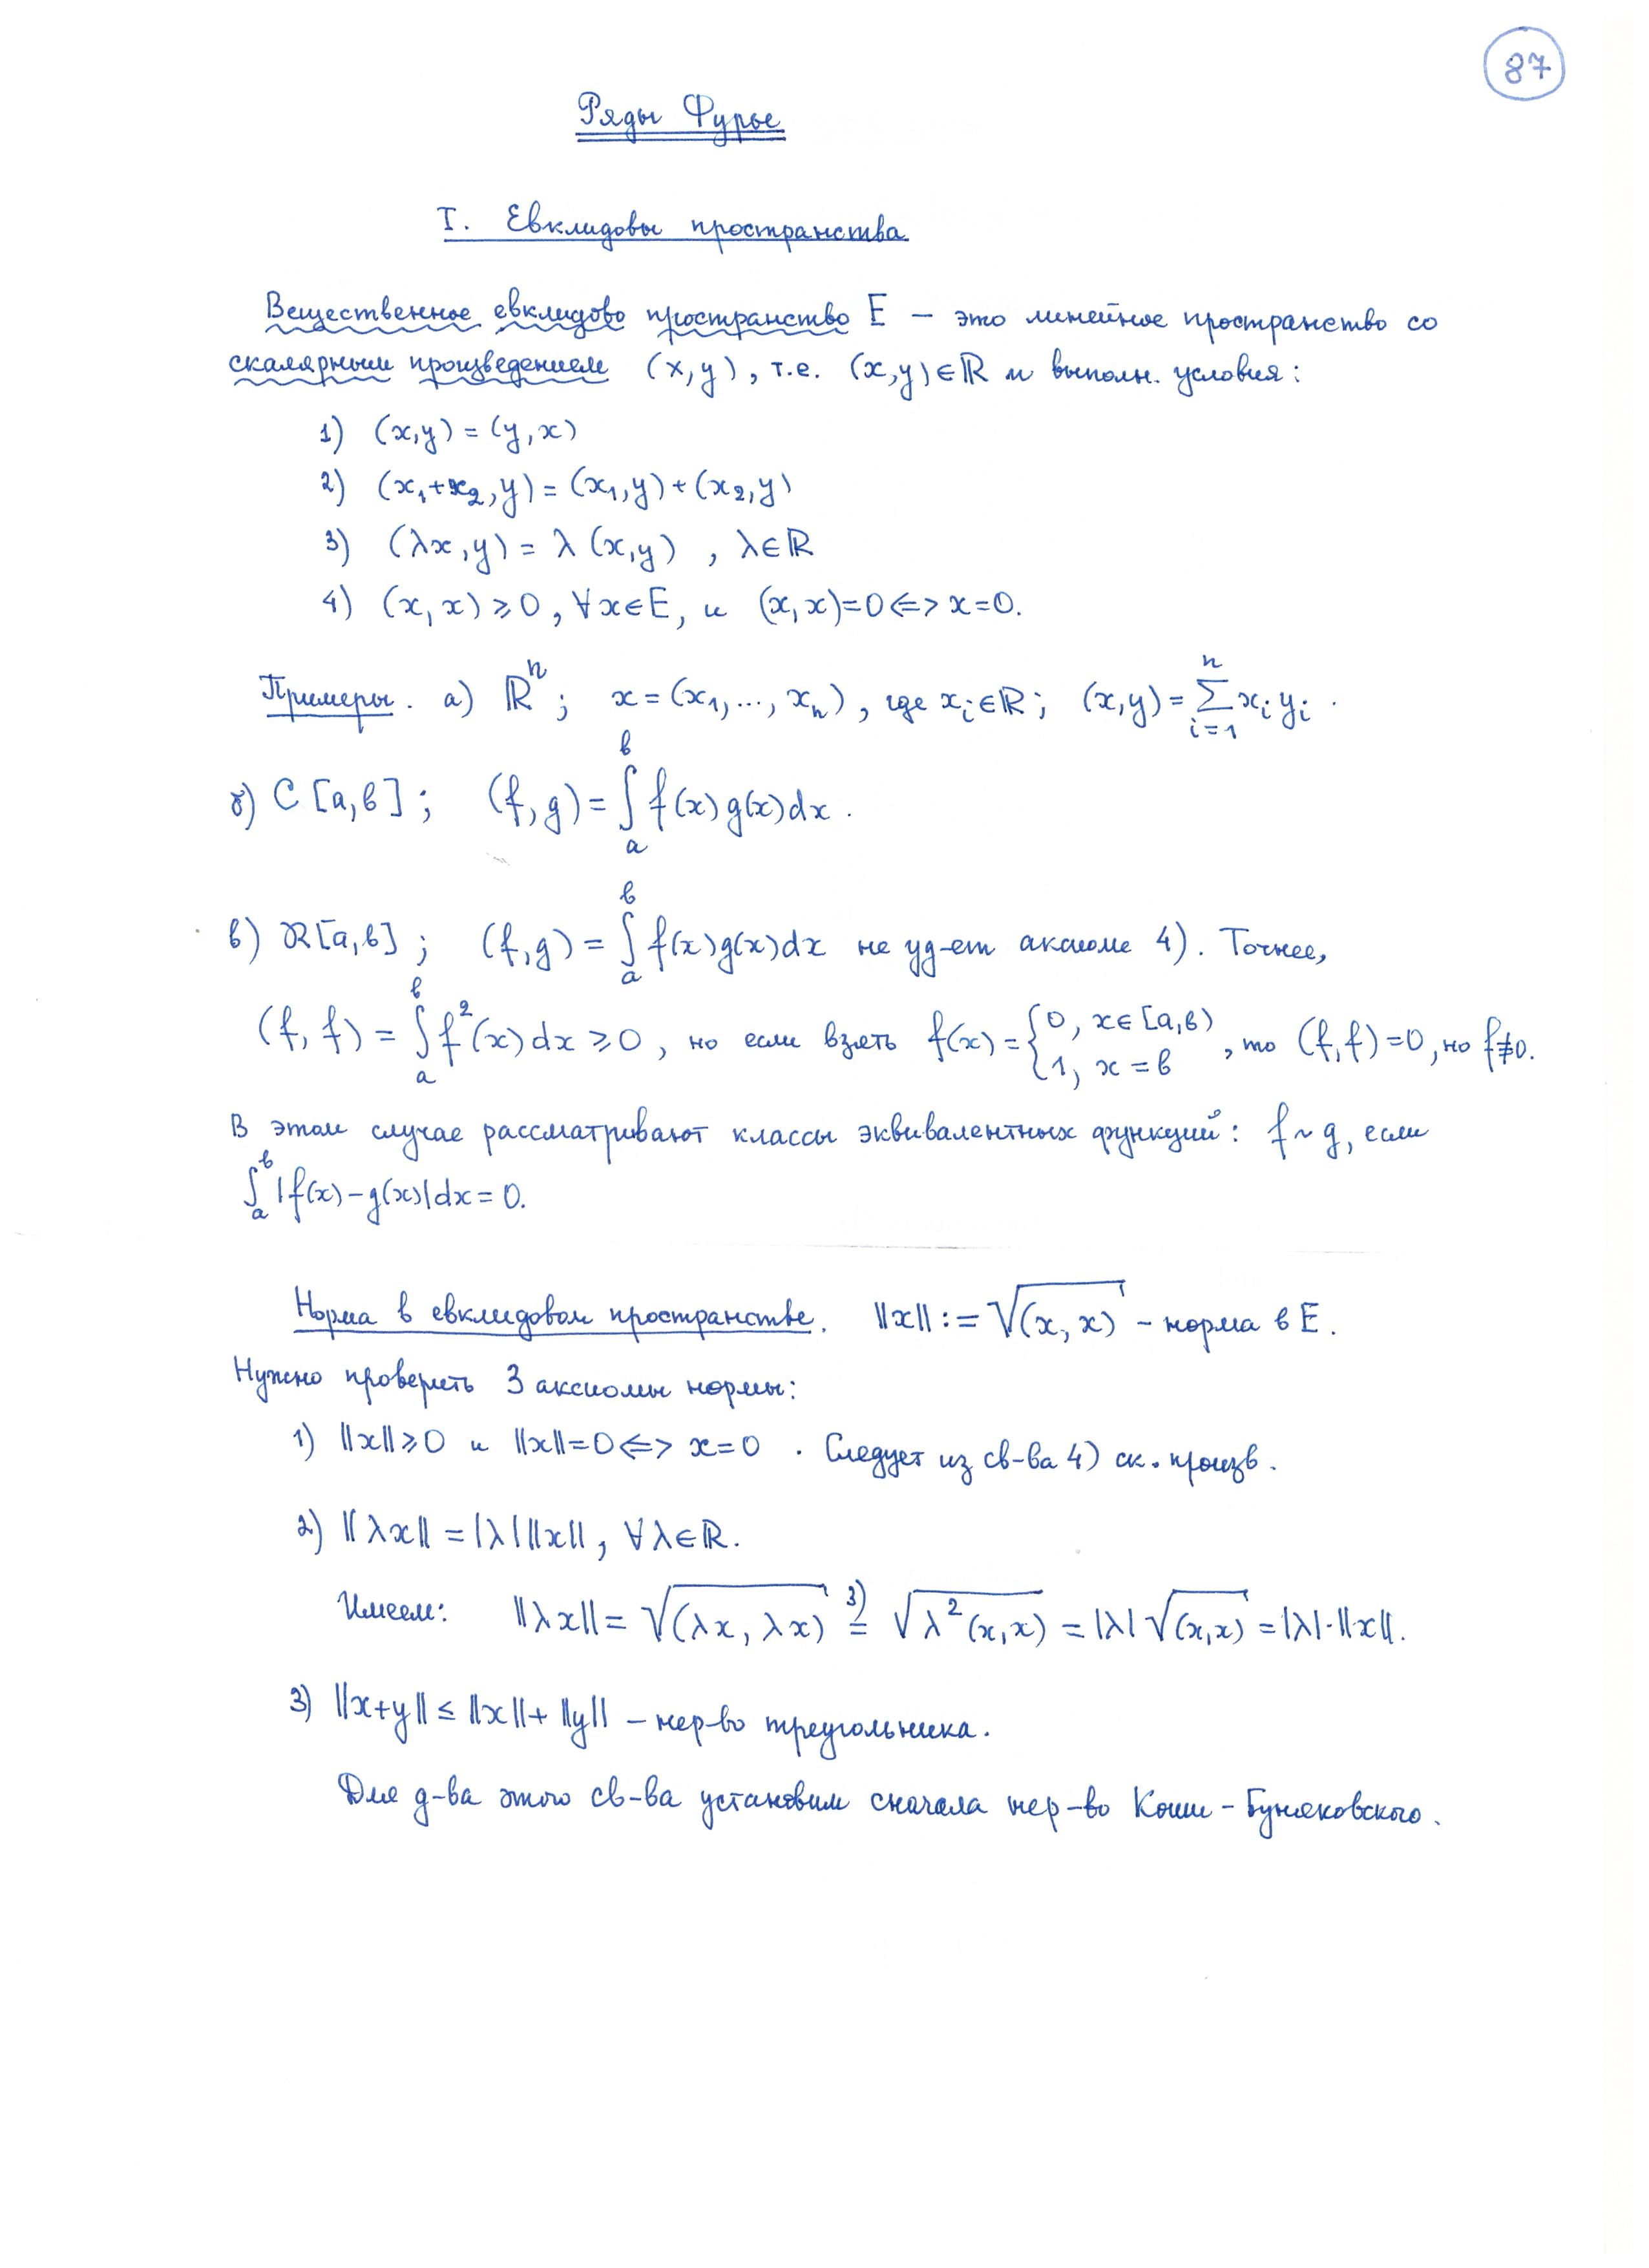 87
Ряды Фурье
I. Евклидовы пространства
Вещественное евклидово пространство E – это линейное пространство со
скалярным произведением (x,y), т.е. (x,y)∈ℝ и выполн. условия:
1) (x,y) = (y,x)
2) (x₁+x₂,y) = (x₁,y)+(x₂,y)
3) (λx,y) = λ(x,y), λ∈ℝ
4) (x,x) ⩾ 0, ∀x∈E, и (x,x)=0 <=> x=0.
Примеры. а) ℝⁿ; x = (x₁,..., xₙ), где xᵢ∈ℝ; (x,y) = ∑ᵢ₌₁ⁿ xᵢ yᵢ.
б) C[a,b]; (f,g) = ∫ₐᵇ f(x)g(x)dx.
в) ℛ[a,b]; (f,g) = ∫ₐᵇ f(x)g(x)dx не уд-ет аксиоме 4). Точнее,
(f,f) = ∫ₐᵇ f²(x)dx ⩾ 0, но если взять f(x) = {0, x∈[a,b) 1, x=b, то (f,f)=0, но f≢0.
В этом случае рассматривают классы эквивалентных функций: f~g, если
∫ₐᵇ |f(x)-g(x)|dx = 0.
Норма в евклидовом пространстве. ‖x‖ := √(x,x) – норма в E.
Нужно проверить 3 аксиомы нормы:
1) ‖x‖⩾0 и ‖x‖=0 <=> x=0. Следует из св-ва 4) ск. произв.
2) ‖λx‖ = |λ|‖x‖, ∀λ∈ℝ.
Имеем: ‖λx‖ = √(λx, λx) =³⁾ √λ²(x,x) = |λ|√(x,x) = |λ|·‖x‖.
3) ‖x+y‖ ≤ ‖x‖+‖y‖ – нер-во треугольника.
Для д-ва этого св-ва установим сначала нер-во Коши-Буняковского.